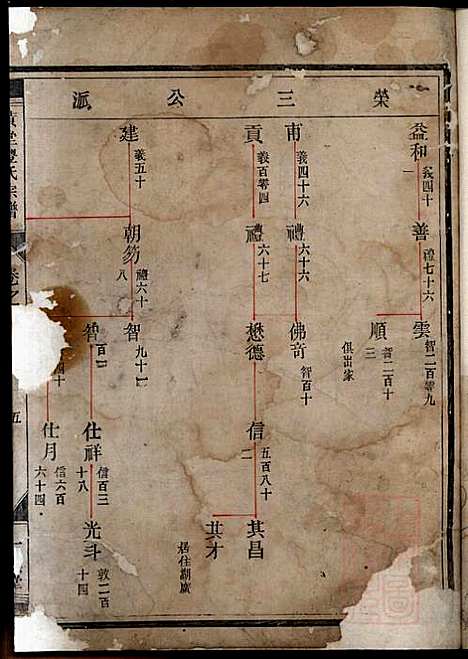 榮三公派
益和
義四十
一
善
禮七十六
雲
智二百零九
順
智二百十
三
俱出家
甫
義四十六
禮
六十六
佛奇
智百十
貢
義百零四
禮
六十七
懋德
信
五百八十
二
其昌
其才
居住湖廣
建
義五十
朝笏
禮六十
八
智
九十一
智
百一
仕祥
信百三
十八
光斗
敦二百
十四
仕月
信六百
六十四
黃堂豐氏宗譜
卷之
五